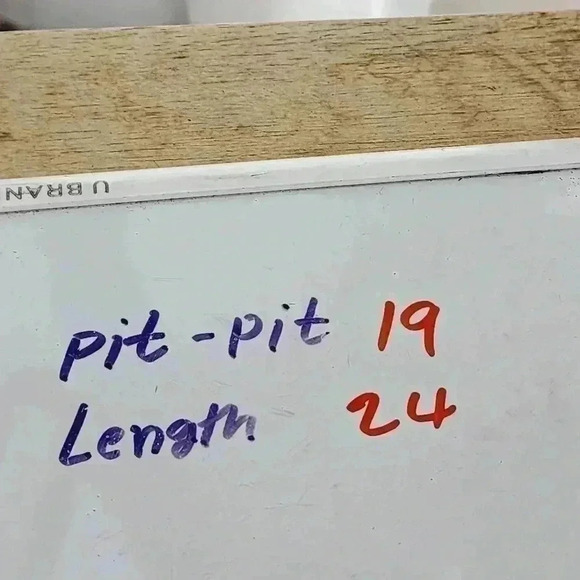 U BRAN
pit - pit 19
Length 24